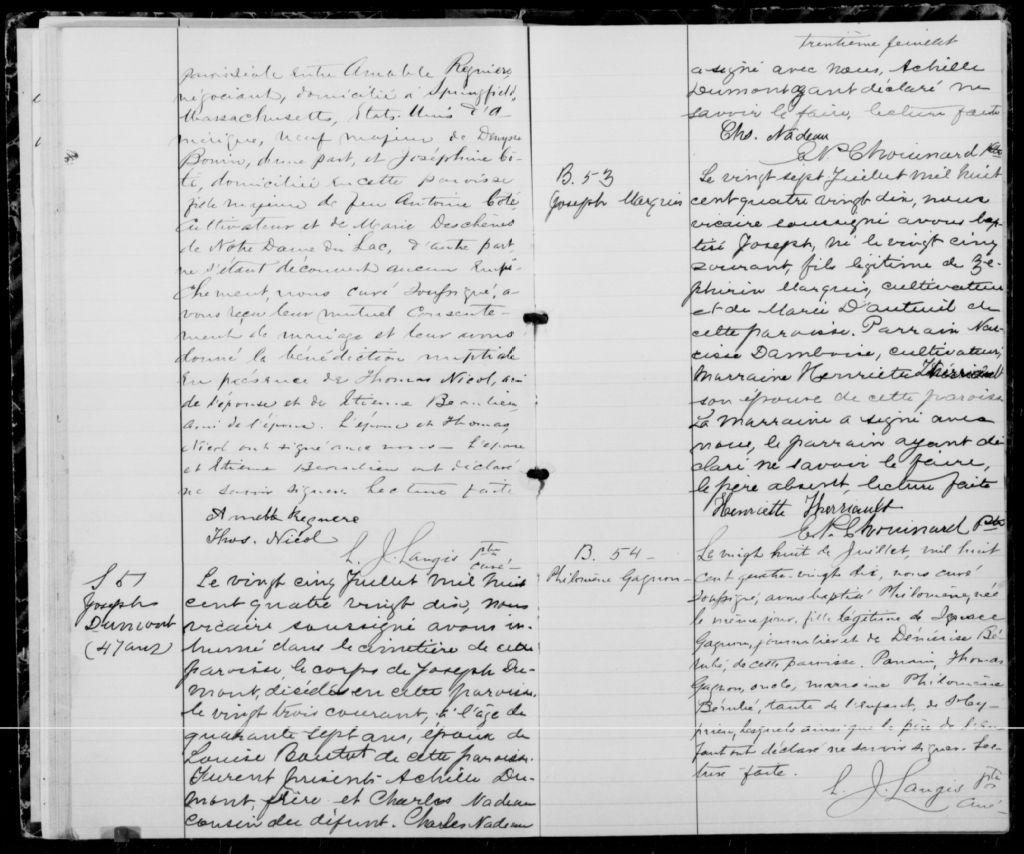 paroissiale entre Amable Regnière
négociant, domicilié à Springfield,
Massachusetts, Etats-Unis d'A
mérique, veuf majeur de Denyse
Bonin, d'une part, et Joséphine Cô-
té, domiciliée en cette paroisse
fille majeure de feu Antoine Côté,
Cultivateur et de Marie Deschènes
de Notre Dame du Lac, d'autre part
ne s'étant découvert aucun Empê-
chement, nous curé soussigné, a-
vons reçu leur mutuel Consente-
ment de mariage et leur avons
donné la bénédiction nuptiale
En présence de Thomas Nicol, ami
de l'épouse et de Etienne Beaulieu,
ami de l'époux. L'époux et Thomas
Nicol ont signé avec nous - L'épouse
et Etienne Beaulieu ont déclaré
ne savoir signer. Lecture faite
Amable Regnere
Thos. Nicol
L. J. Langis ptre
curé-
S 51
Joseph
Dumont
(47 ans)
Le vingt cinq Juillet mil huit
cent quatre vingt dix, nous
vicaire soussigné avons in-
humé dans le cimetière de cette
paroisse le corps de Joseph Du-
mont, décédé en cette paroisse
le vingt trois courant, à l'âge de
quarante sept ans, époux de
Louise Boutot de cette paroisse.
Furent présents Achille Du-
mont, frère et Charles Nadeau
cousin du défunt. Charles Nadeau
trentième feuillet
a signé avec nous, Achille
Dumont ayant déclaré ne
savoir le faire, lecture faite
Chs. Nadeau
E. P. Chouinard Ptre
B. 53
Joseph Marquis
Le vingt sept Juillet mil huit
cent quatre vingt dix, nous
vicaire soussigné avons bap-
tisé Joseph, né le vingt cinq
courant, fils légitime de Zé-
phirin Marquis, cultivateur
et de Marie D'auteuil de
cette paroisse. Parrain Nar-
cisse Damboise, cultivateur;
Marraine Henriette Therriault
son épouse de cette paroisse
La marraine a signé avec
nous, le parrain ayant dé-
claré ne savoir le faire,
le père absent, lecture faite
Henriette Therriault
E. P. Chouinard Ptre
B. 54 -
Philomène Gagnon -
Le vingt huit de Juillet, mil huit
cent quatre-vingt dix, nous curé
soussigné, avons baptisé Philomène, née
le même jour, fille légitime de
Gagnon, journalier et de Démérise Bé-
rubé, de cette paroisse. Parrain, Thomas
Gagnon, oncle, marraine Philomène
Bérubé, tante de l'enfant, de St Cy-
prien, lesquels ainsi que le père de l'en-
fant ont déclaré ne savoir signer. Lec-
ture faite.
L. J. Langis ptre
curé-